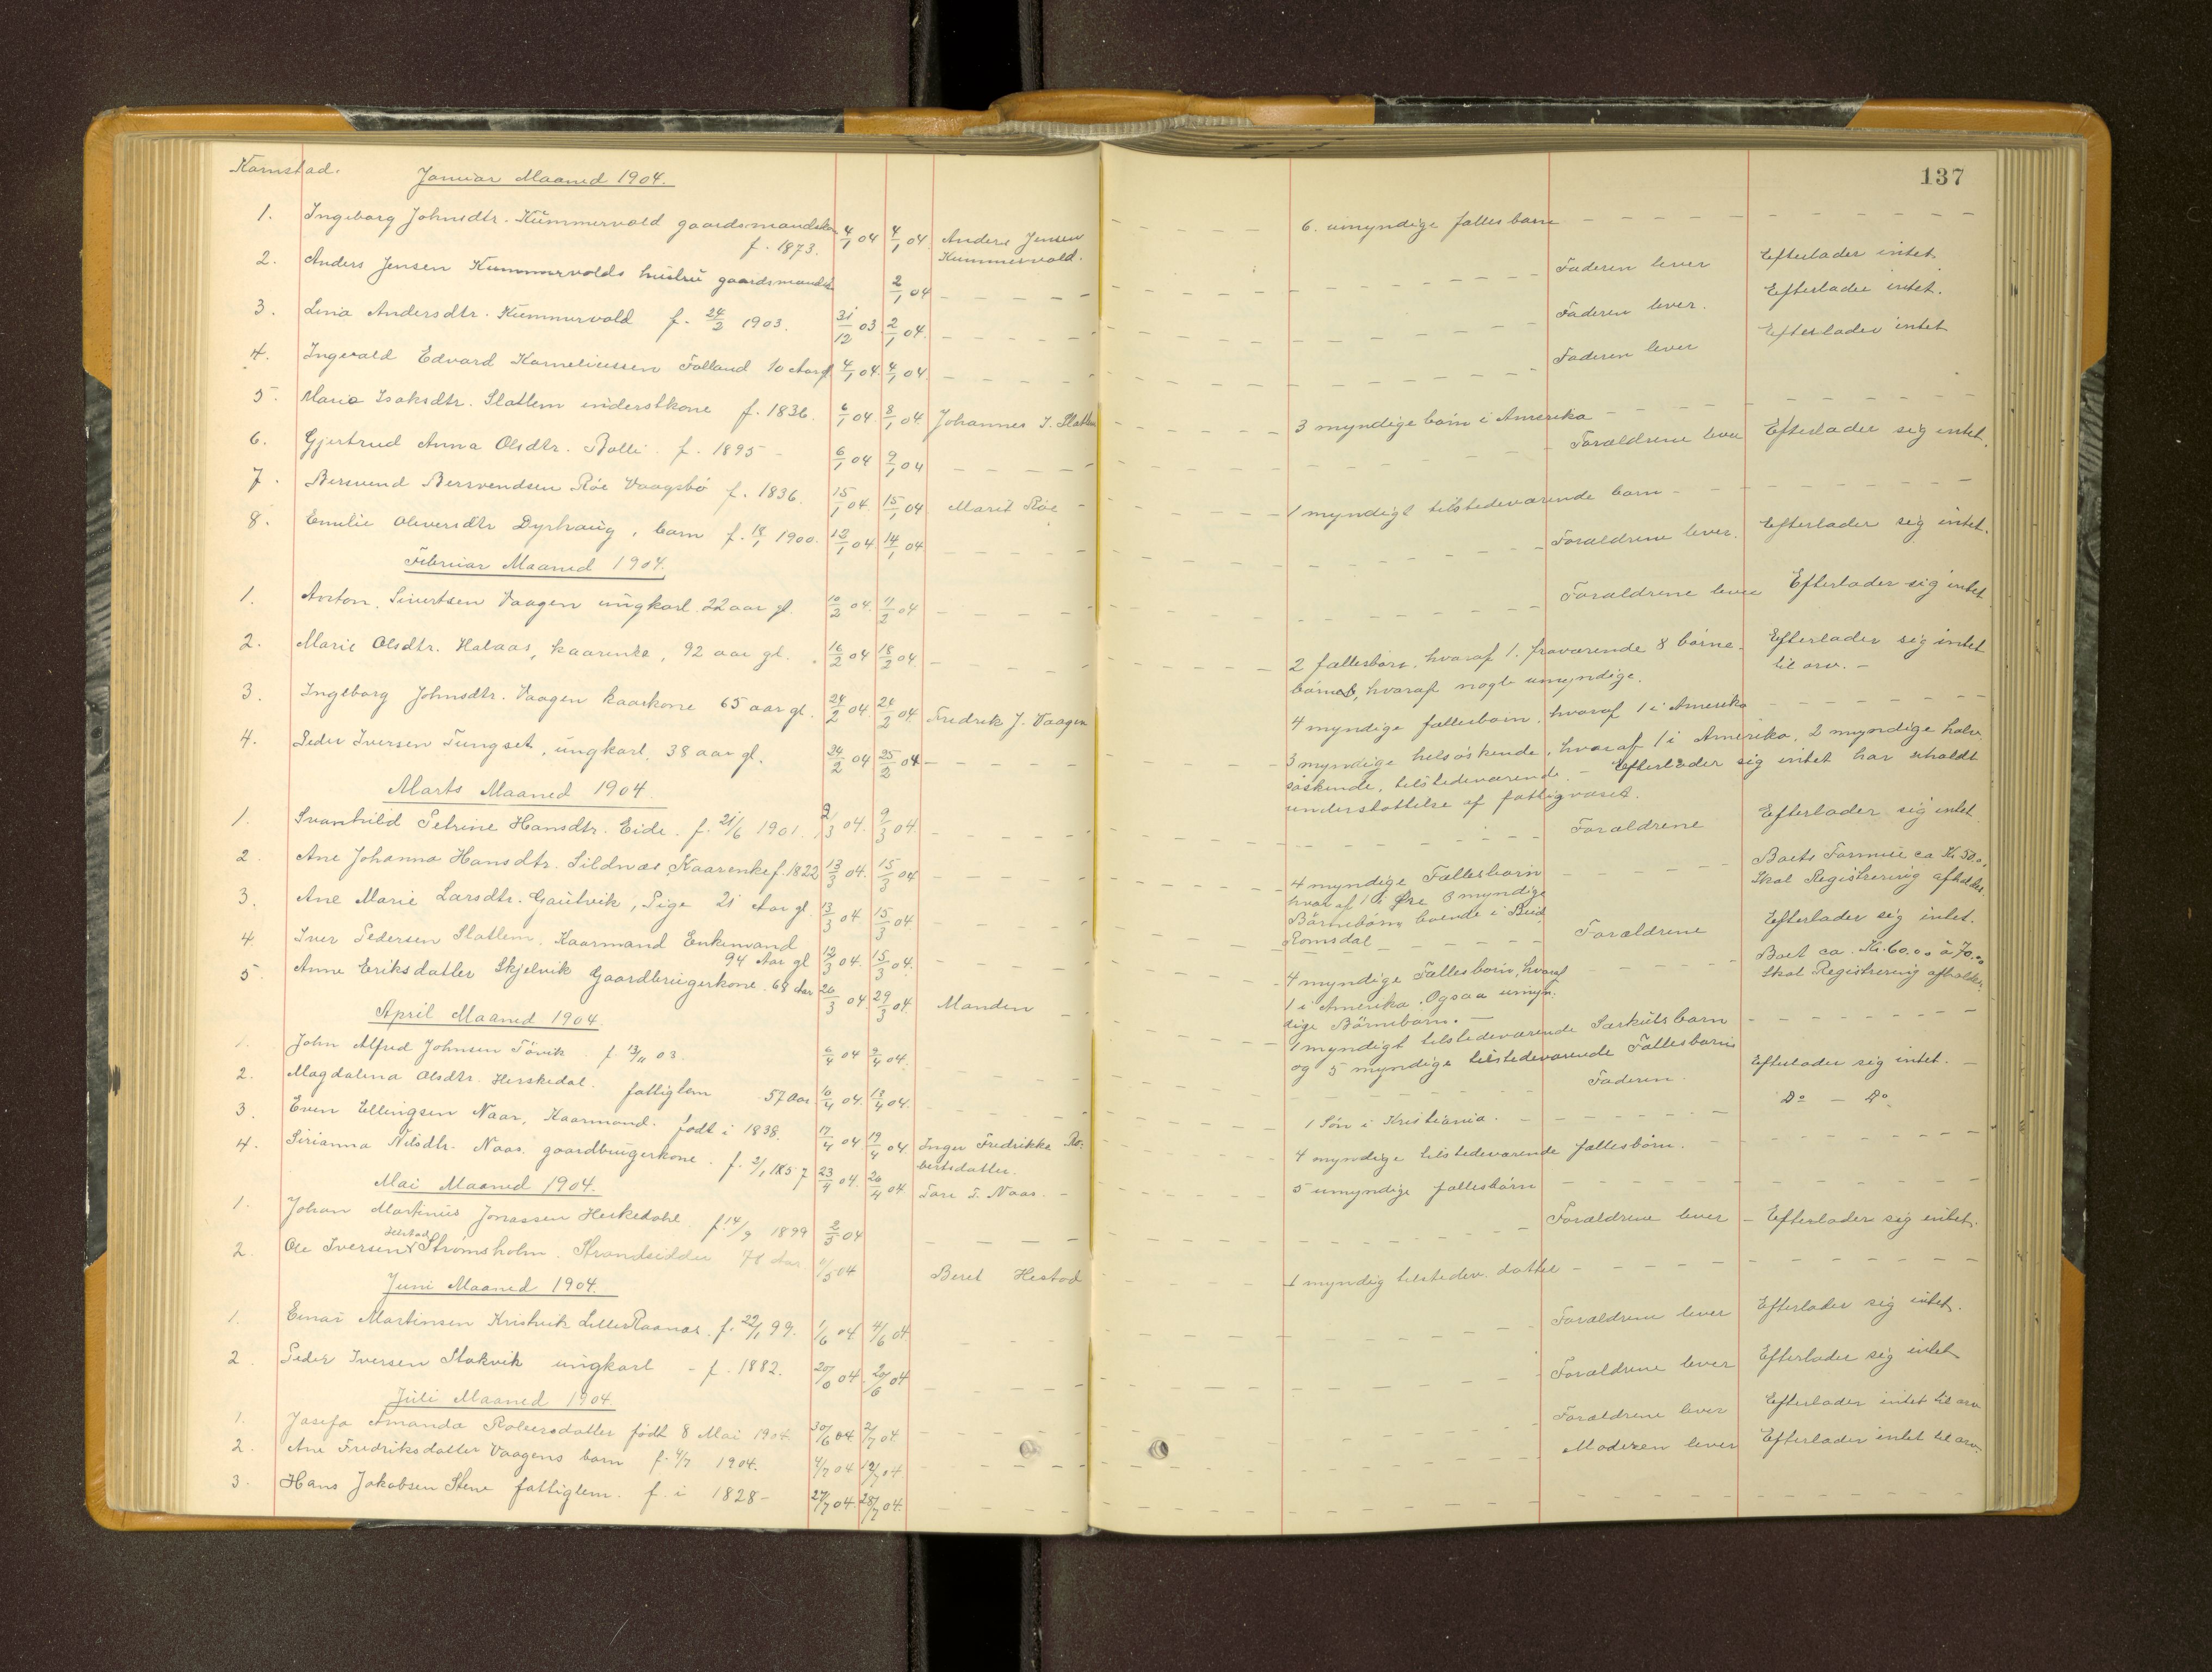 137
Kornstad. Januar Maaned 1904.
1. Ingeborg Johnsdtr. Kummervold gaardsmandsko 4/1 04 4/1 04. Anders Jensen 6. umyndige fællesbørn
f. 1873. Kummervold.
2. Anders Jensen Kummervolds hustru gaardsmands 2/1 04 Faderen lever Efterlader intet.
3. Lina Andersdtr. Kummervold f. 24/2 1903. 31/12 03. 2/1 04. Faderen lever. Efterlader intet.
4. Ingevald Edvard Korneliussen Folland 10 Aar gl 4/1 04. 4/1 04. Faderen lever Efterlader intet
5. Maria Isaksdtr. Slatlem inderstkone f. 1836. 6/1 04 8/1 04. Johannes I. Slatlem 3 myndige børn i Amerika
6. Gjertrud Anna Olsdtr. Bolli f. 1895 6/1 04 9/1 04 Forældrene lever Efterlader sig intet.
7. Bersvend Bersvendsen Røe Vaagsbø f. 1836. 15/1 04. 15/1 04 Marit Røe 1 myndigt tilstedeværende barn
8. Emilie Oliversdtr Dyrhaug, barn f. 18/1 1900. 12/1 04 14/1 04 Forældrene lever. Efterlader sig intet.
Februar Maaned 1904.
1. Anton Sivertsen Vaagen ungkarl 22 aar gl. 10/2 04. 11/2 04 Forældrene lever Efterlader sig intet
2. Marie Olsdtr. Halaas, kaarenke, 92 aar gl. 16/2 04 18/2 04. 2 fællesbørn, hvoraf 1. fraværende 8 børne- Efterlader sig intet
børnsb, hvoraf nogle umyndige. til arv. -
3. Ingeborg Johnsdtr. Vaagen kaarkone 65 aar gl. 24/2 04. 24/2 04. Fredrik J. Vaagen 4 myndige fællesbørn, hvoraf 1 i Amerika
4. Peder Iversen Tungset, ungkarl, 38 aar gl. 24/2 04 25/2 04 3 myndige helsøskende, hvoraf 1 i Amerika, 2 myndige halv-
søskende, tilstedeværende. - Efterlader sig intet har erholdt
understøttelse af fattigvæset.
Marts Maaned 1904.
1. Svanhild Petrine Hansdtr. Eide. f. 21/6 1901. 2/3 04. 9/3 04. Forældrene Efterlader sig intet
2. Ane Johanna Hansdtr. Sildnæs, Kaarenke f. 1822 13/3 04. 15/3 04 4 myndige Fællesbørn Boets Formue ca Kr. 50.,
hvor af 1 i Øre 3 myndige Skal Registrering afholdes.
Børnebørn boende i Bud
Romsdal
3. Ane Marie Larsdtr. Gautvik, Pige 21 Aar gl. 13/3 04. 15/3 04. Forældrene Efterlader sig intet.
4. Iver Pedersen Slatlem, Kaarmand Enkemand 12/3 04. 15/3 04. 4 myndige Fællesbørn, hvoraf Boet ca. Kr. 60.00 à 70.00
94 Aar gl 1 i Amerika. Ogsaa umyn- Skal Registrering afholdes.
dige Børnebørn. -
5. Anne Eriksdatter Skjelvik Gaardbrugerkone. 68 Aar 26/3 04. 29/3 04. Manden 1 myndigt tilstedeværende Særkulsbarn
og 5 myndige tilstedeværende Fællesbørn
April Maaned 1904.
1. John Alfred Johnsen Tøvik f. 13/11 03. 6/4 04 9/4 04. Faderen. Efterlader sig intet. -
2. Magdalena Olsdtr. Herskedal. fattiglem 57 Aar 10/4 04. 13/4 04. 1 Søn i Kristiania. Do - Do
3. Even Ellingsen Naas, Kaarmand. født i 1838. 17/4 04 19/4 04. Inger Fredrikke Ro- 4 myndige tilstedeværende fællesbørn.
bertsdatter.
4. Sirianna Nilsdtr. Naas, gaardbrugerkone. f. 2/1 1857 23/4 04. 26/4 04. Tore T. Naas. 5 umyndige fællesbørn
Mai Maaned 1904.
1. Johan Martinius Jonassen Herkedahl f. 14/9 1899 2/5 04 Forældrene lever Efterlader sig intet.
2. Ole Iversen Strømsholm. Strandsidder 78 Aar 11/5 04 Beret Hestad 1 myndig tilstedev. datter
Juni Maaned 1904.
1. Einar Martinsen Kristvik Lille Raanæs. f. 22/1 99. 1/6 04 4/6 04 Forældrene lever Efterlader sig intet.
2. Peder Iversen Stokvik ungkarl - f. 1882. 20/6 04 20/6 04 Forældrene lever Efterlader sig intet
Juli Maaned 1904
1. Josefa Amanda Rolvsdatter født 8 Mai 1904. 30/6 04. 2/7 04. Forældrene lever Efterlader intet til arv
2. Ane Fredriksdatter Vaagens barn f. 4/7 1904. 4/7 04 12/7 04. Moderen lever Efterlader intet til arv.
3. Hans Jakobsen Stene fattiglem. f. i 1828 - 27/7 04. 28/7 04.